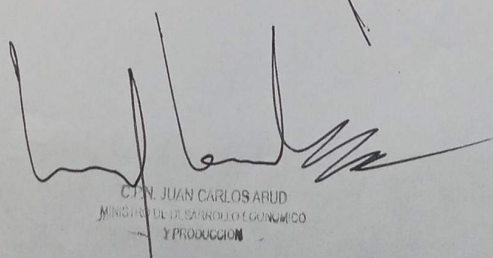 C.P.N. JUAN CARLOS ABUD
MINISTRO DE DESARROLLO ECONOMICO
Y PRODUCCION